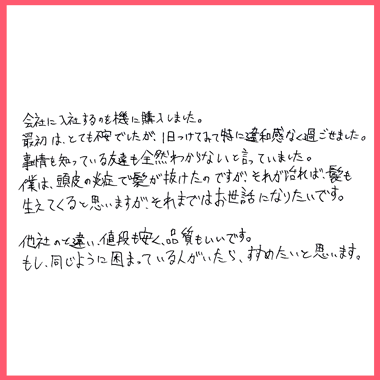 会社に入社するのを機に購入しました。
最初は、とても不安でしたが、1日つけてみて特に違和感なく過ごせました。
事情を知っている友達も全然わからないと言っていました。
僕は、頭皮の炎症で髪が抜けたのですが、それが治れば、髪も
生えてくると思いますが、それまではお世話になりたいです。
他社のと違い、値段も安く、品質もいいです。
もし、同じように困まっている人がいたら、すすめたいと思います。